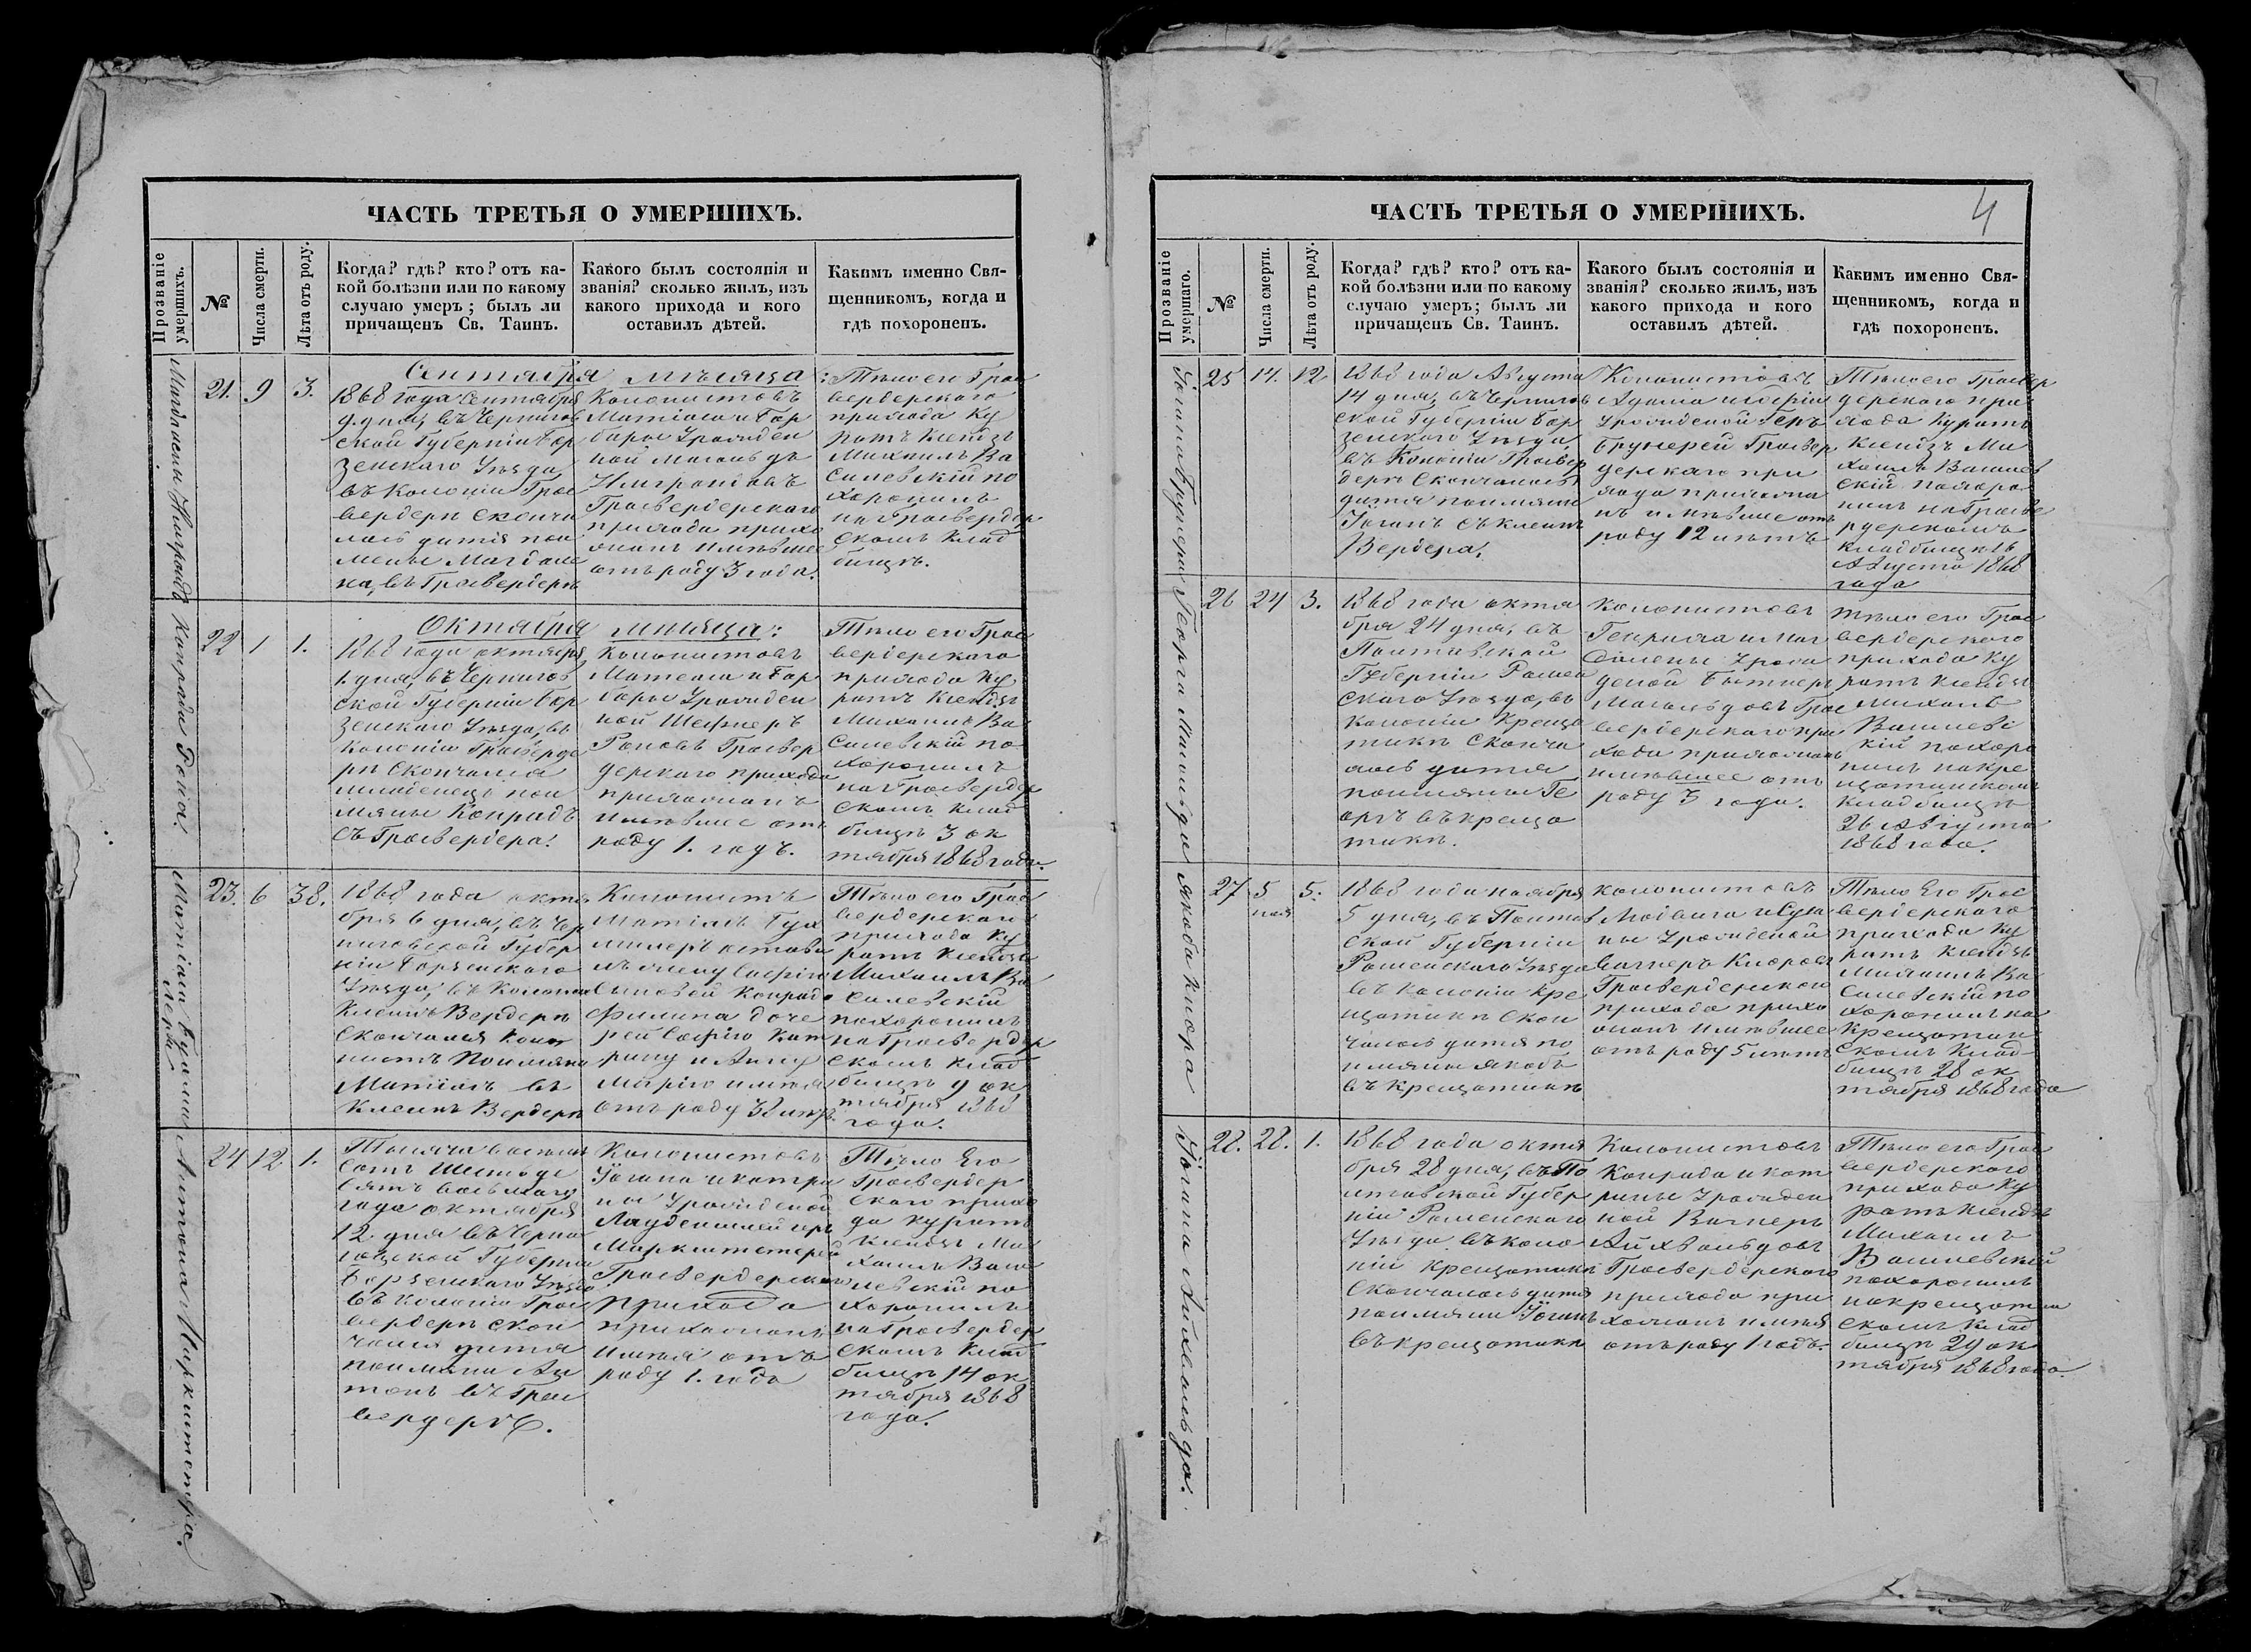 ЧАСТЬ ТРЕТЬЯ О УМЕРШИХЪ.
Прозваніе умершихъ.
№
Числа смерти.
Лѣта отъ роду.
Когда? гдѣ? кто? отъ ка-
кой болѣзни или по какому
случаю умеръ; былъ ли
причащенъ Св. Таинъ.
Какого былъ состоянія и
званія? сколько жилъ, изъ
какого прихода и кого
оставилъ дѣтей.
Какимъ именно Свя-
щенникомъ, когда и
гдѣ похороненъ.
Сентября мѣсяца:
21. 9 3.
1868 года Сентября
9. дня, въ Чернигов
ской Губерніи Бор
зенскаго Уѣзда
въ Колоніи Грос
вердерѣ Сконча
лась дитя по и
мени Магдале
на, въ Гросвердерѣ
Колонистовъ
Матіаса и Бар
бары Урожден
ной
Гросвердерскаго
прихода прихо
жанъ имѣвшее
отъ роду 3 года.
Тѣло его Грос
вердерскаго
прихода Ку
ратъ Ксендзъ
Михаилъ Ва
силевскій по
хоронилъ
на Гросвердер
скомъ Клад
бищѣ.
Конрада Рона.
22 1 1.
Октября мѣсяца:
1868 года октября
1. дня, въ Чернигов
ской Губерніи Бор
зенскаго Уѣзда, въ
Колоніи Гросверде
рѣ Скончался
младенецъ по и
мяни Конрадъ
съ Гросвердера.
Колонистовъ
Матеаса и Бар
бары Урожден
ной Шефнеръ
Роновъ Гросвер
дерскаго прихода
прихожанъ
имѣвшее отъ
роду 1. годъ.
Тѣло его Грос
вердерскаго
прихода Ку
ратъ Ксендзъ
Михаилъ Ва
силевскій по
хоронилъ
на Гросвердер
скомъ Клад
бищѣ 3 ок
тября 1868 года.
23. 6 38.
1868 года октя
бря 6 дня, въ Чер
ниговской Губер
ніи Борзенскаго
Уѣзда, въ Колоніи
Клейнъ Вердерѣ
Скончался коло
нистъ по имяни
Матіасъ въ
Клеинъ Вердерѣ
Колонистъ
Матіасъ
сыновей Конрада
Филипа доче
рей Софію Кат
рину и Анну
Марію имѣя
отъ роду 38 лѣтъ.
Тѣло его Грос
вердерскаго
прихода Ку
ратъ Ксендзъ
Михаилъ Ва
силевскій
похоронилъ
на Гросвердер
скомъ Клад
бищѣ 9 ок
тября 1868
года.
Антона Маркштетера.
24 12 1.
Тысяча восемь
сотъ Шестьде
сятъ восьмаго
года октября
12 дня въ Черни
говской Губерніи
Борзенскаго Уѣзда
въ Колоніи Грос
вердерѣ Скон
чался дитя
по имяни Ан
тонъ въ Грос
вердерѣ.
Колонистовъ
Іогана и Катри
ны Урожденой
Гросвердерскаго
прихода
прихожанъ
имѣя отъ
роду 1. годъ
Тѣло Его
Гросвердер
скаго прихо
да Куратъ
Ксендзъ Ми
хаилъ Васи
левскій по
хоронилъ
на Гросвердер
скомъ Клад
бищѣ 14 ок
тября 1868
года.
ЧАСТЬ ТРЕТЬЯ О УМЕРШИХЪ.
4
Прозваніе умершаго.
№
Числа смерти.
Лѣта отъ роду.
Когда? гдѣ? кто? отъ ка-
кой болѣзни или по какому
случаю умеръ; былъ ли
причащенъ Св. Таинъ.
Какого былъ состоянія и
званія? сколько жилъ, изъ
какого прихода и кого
оставилъ дѣтей.
Какимъ именно Свя-
щенникомъ, когда и
гдѣ похороненъ.
25 14. 12
1868 года Августа
14 дня, въ Чернигов
ской Губерніи Бор
зенскаго Уѣзда
въ Колоніи Гросвер
дерѣ Скончалась
дитя по имяни
Іоганъ съ Клейнъ
Вердера.
Колонистовъ
Адама
Урожденой
Гросвер
дерскаго при
хода прихожа
нъ имѣвшее отъ
роду 12 лѣтъ
Тѣло его Гросвер
дерскаго при
хода Куратъ
Ксендзъ Ми
хаилъ Василев
скій похоро
нилъ на Гросве
рдерскомъ
кладбищѣ 16
Августа 1868
года
Георга Мигольда
26 24 3.
1868 года октя
бря 24 дня, въ
Полтавской
Губерніи Ромен
скаго Уѣзда, въ
Колоніи Креща
тикѣ Сконча
лась дитя
по имяни Ге
оргъ въ Креща
тикѣ.
Колонистовъ
Генриха и Маг
далены Урож
деной
Грос
вердерскаго при
хода прихожанъ
имѣвшее отъ
роду 3 года.
Тѣло его Грос
вердерскаго
прихода Ку
ратъ Ксендзъ
Михаилъ
Василевс
кій похоро
нилъ на Кре
щатинскомъ
кладбищѣ
26 Августа
1868 года.
Якоба Кнора
27 5 5.
ноя
1868 года ноября
5 дня, въ Полтав
ской Губерніи
Роменскаго Уѣзда
въ Колоніи Кре
щатикѣ Скон
чалась дитя по
имяни Якобъ
въ Крещатикѣ
Колонистовъ
Людвига и Суза
ны Урожденой
Вагнеръ Кноровъ
Гросвердерскаго
прихода прихо
жанъ имѣвшее
отъ роду 5 лѣтъ
Тѣло Его Грос
вердерскаго
прихода Ку
ратъ Ксендзъ
Михаилъ Ва
силевскій по
хоронилъ на
Крещатин
скомъ Клад
бищѣ 28 ок
тября 1868 года
Іогана Айхвальда.
28. 28. 1.
1868 года октя
бря 28 дня, въ По
лтавской Губер
ніи Роменскаго
Уѣзда въ Коло
ніи Крещатикѣ
Скончалась дитя
по имяни Іоганъ
въ Крещатикѣ
Колонистовъ
Конрада и Кат
рины Урожден
ной Вагнеръ
Айхвальдовъ
Гросвердерскаго
прихода при
хожанъ имѣя
отъ роду 1 годъ.
Тѣло его Грос
вердерскаго
прихода Ку
ратъ Ксендзъ
Михаилъ
Василевскій
похоронилъ
на Крещатин
скомъ Клад
бищѣ 29 ок
тября 1868 года.